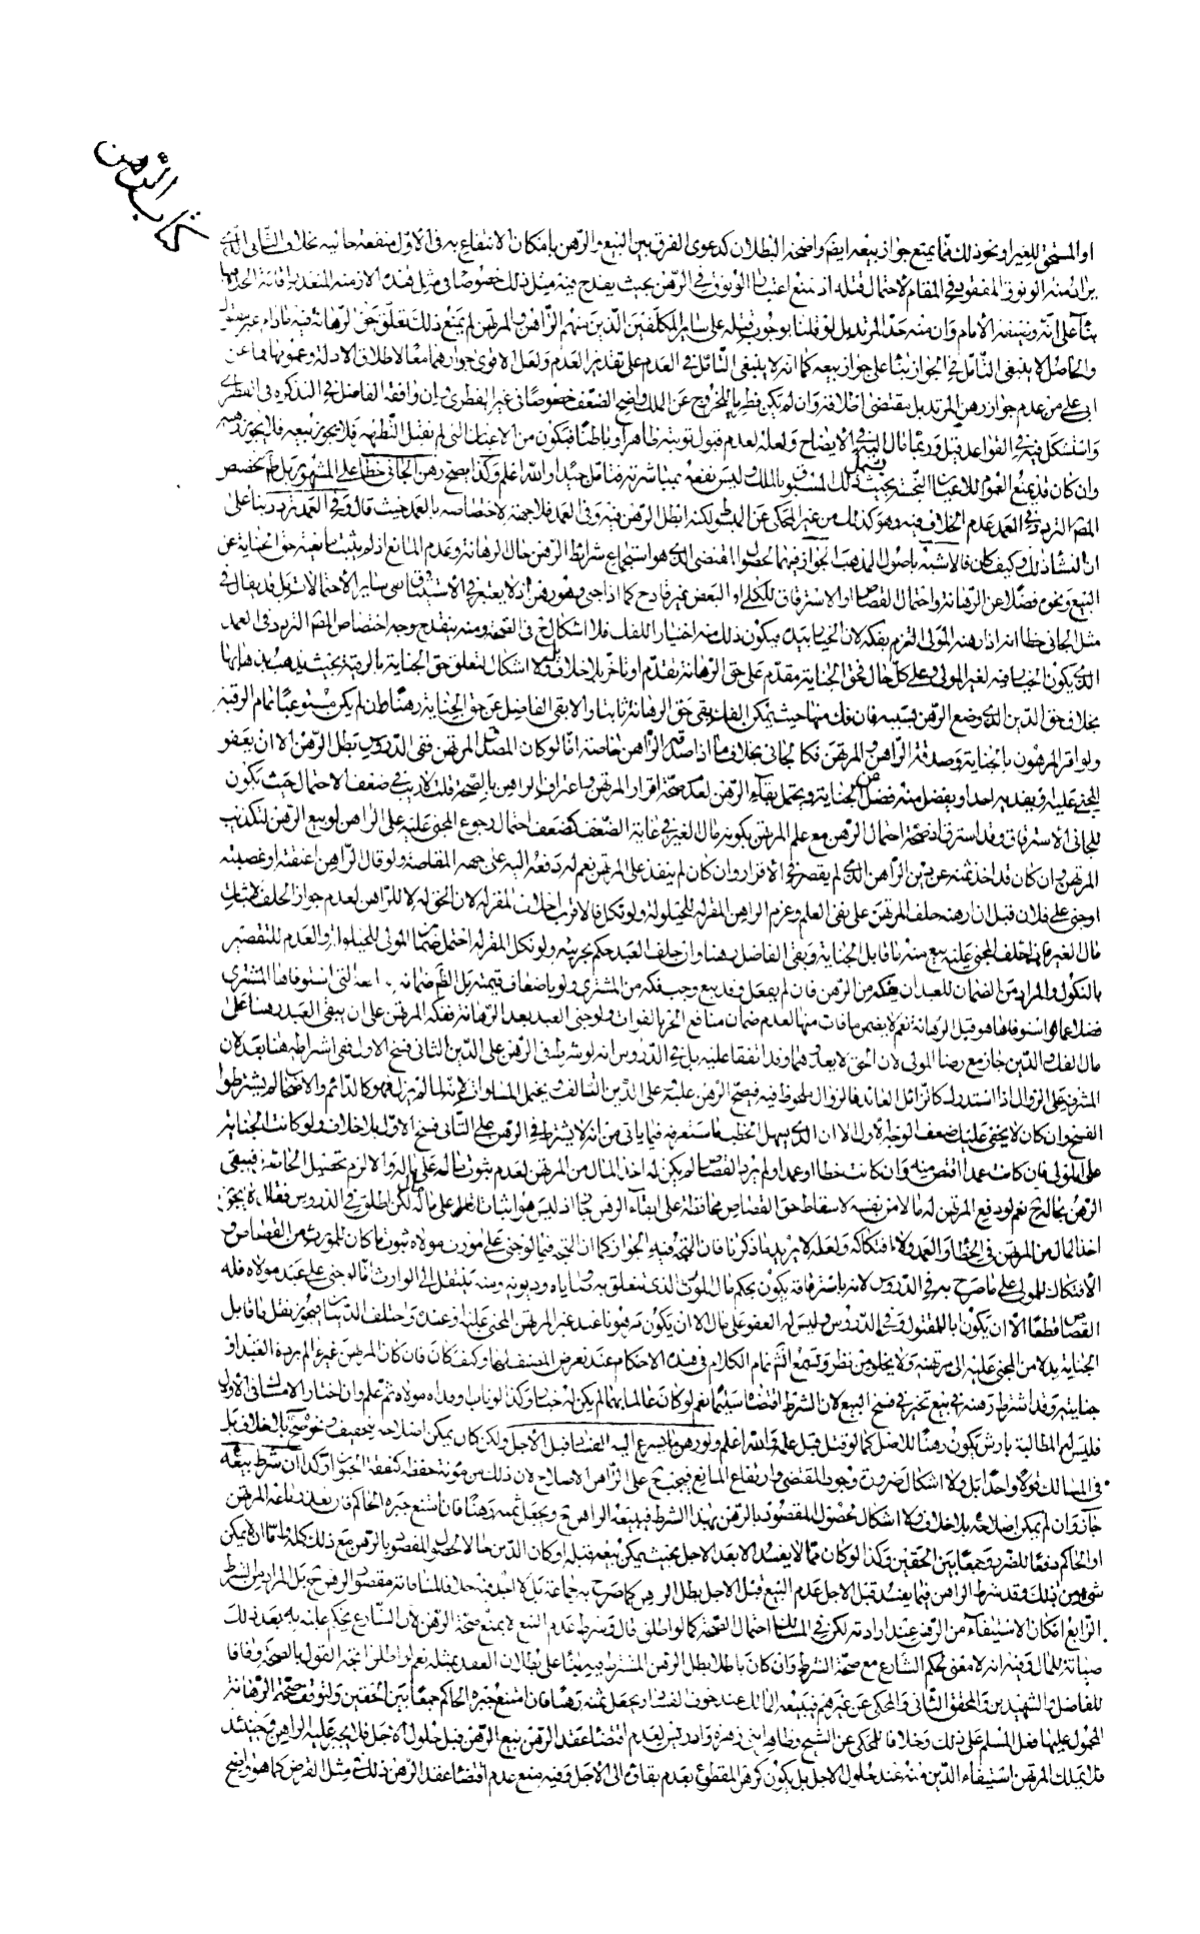 كتاب الرهن
او المستحق للغير ونحو ذلك مما يمتع جواز بيعه ايضا واضحة البطلان كدعوى الفرق بين البيع والرهن بامكان الانتفاع به فى الاول منفعة حاليه بخلاف الثانى الذى
يراد منه الوثوق المفقود فى المقام لاحتمال قتله اذ نمنع اعتبار الوثوق فى الرهن بحيث يقدح فيه مثل ذلك خصوصا فى مثل هذه الازمنة المتعذر اقامة الحد فيها
بناء على انه وظيفة الامام وان منه حد المرتد بل لو قلنا بوجوب قتله على ساير المكلفين الذين منهم الراهن والمرتهن لم يمنع ذلك تعلق حق الرهانة فيه مادام غير مقتول
والحاصل لا ينبغى التامل فى الجواز بناء على جواز بيعه كما انه لا ينبغى التامل فى العدم على تقدير العدم ولعل الاقوى جوازهما معا لاطلاق الادلة وعمومها فما عن
ابى على من عدم جواز رهن المرتد بل مقتضى اطلاقه وان لم يكن فطريا للخروج عن الملك واضح الضعف خصوصا فى غير الفطرى وان وافقه الفاضل فى التذكرة فى الفطرى
واستشكل فيه فى القواعد قيل وربما مال اليه فى الايضاح ولعله لعدم قبول توبته ظاهرا وباطنا فيكون من الاعيان التى لم تقبل التطهير فلا يجوز بيعه فلا يجوز رهنه
وان كان قد يمنع العموم للاعيان النجسة بحيث يشمل ذلك المسبوق بالملك وليس نفعه بمباشرته فتامل جيدا والله اعلم وكذا يصح رهن الجانى خطأ على المشهور بل لم يخصص
المصنف التردد فى العمد عدم الخلاف فيه وهو كذلك من غير المحكى عن المبسوط ولكنه ابطل الرهن فيه وفى العمد فلا جهة لاختصاصه بالعمد حيث قال وفى العمد تردد بناء على
ان المنشأ ذلك وكيف كان فالاشبه باصول المذهب الجواز فيهما لحصول المقتضى الذى هو استجماع شرائط الرهن حال الرهانة وعدم المانع اذ لم يثبت مانعية حق الجناية عن
البيع ونحوه فضلا عن الرهانة واحتمال القصاص او الاسترقاق للكل او البعض غير قادح كما اذا جنى وهو رهن اذ لا يعتبر فى الاستيثاق من ساير الاحتمالات بل قد يقال فى
مثل الجانى خطا انه اذا رهنه المولى التزم بفكه لان الخيار بيده فيكون ذلك منه اختيارا للفك فلا اشكال ح فى الصحة ومنه ينقدح وجه اختصاص المصنف التردد فى العمد
الذى يكون الخيار فيه لغير المولى وعلى كل حال فحق الجناية مقدم على حق الرهانة تقدم او تاخر بلا خلاف بل ولا اشكال لتعلق حق الجناية بالرقبة بحيث يذهب بذهابها
بخلاف حق الدين الذى وضع الرهن بسببه فان فك منها حيث يمكن الفك بقى حق الرهانة ثابتا والا بقى الفاضل عن حق الجناية رهنا ان لم يكن مستوعبا تمام الرقبة
ولو اقر المرهون بالجناية وصدقه الراهن والمرتهن فكالجانى بخلاف ما اذا صدقه الراهن خاصة اما لو كان المصدق المرتهن ففى الدروس بطل الرهن الا ان يعفو
المجنى عليه او يفديه احد او يفضل منه فضل عن الجناية ويحتمل بقاء الرهن لعدم صحة اقرار المرتهن واعتراف الراهن بالصحة قلت لا ريب فى ضعف الاحتمال حيث يكون
للجانى الاسترقاق وقد استرق اذ صحة احتمال الرهن مع علم المرتهن بكونه مال الغير فى غاية الضعف كضعف احتمال رجوع المجنى عليه على الراهن لو بيع الرهن لتكذيب
المرتهن وان كان قد اخذ ثمنه عن دين الراهن الذى لم يقصر فى الاقرار وان كان لم ينفذ على المرتهن نعم له دفعه اليه على جهة المقاصة ولو قال الراهن اعتقته او غصبته
او جنى على فلان قبل ان رهنه حلف المرتهن على نفى العلم وغرم الراهن المقر له للحيلولة ولو نكل فالاقرب احلاف المقر له لان الحق له لا للراهن لعدم جواز الحلف لاثبات
مال لغيره فاذا حلف المجنى عليه بيع منه ما قابل الجناية وبقى الفاضل رهنا وان حلف العبد حكم بحريته ولو نكل المقر له احتمل ضمان المولى للحيلولة والعدم للتقصير
بالنكول والمراد من الضمان للعبد ان يفكه من الرهن فان لم يفعل وقد بيع وجب فكه من المشترى ولو باضعاف قيمته بل الظاهر ضمانه منافعه التى استوفاها المشترى
فضلا عما لو استوفاها هو قبل الرهانة نعم لا يضمن ما فات منها لعدم ضمان منافع الحر بالفوات ولو جنى العبد بعد الرهانة ففكه المرتهن على ان يبقى العبد رهنا على
مال الفك والدين جاز مع رضا المولى لان الحق لا يعدوهما وقد اتفقا عليه بل فى الدروس انه لو شرط فى الرهن على الدين الثانى فسخ الاول ففى اشتراطه هنا بعد لان
المشرف على الزوال اذا استدرك كالزائل العائد فالزوال ملحوظ فيه فيصح الرهن عليه وعلى الدين السالف ويحتمل المساواة لانه لما لم يزل فهو كالدائم والاصحاب لم يشترطوا
الفسخ وان كان لا يخفى عليك ضعف الوجه الاول الا ان الذى يسهل الخطب ما ستعرفه فيما ياتى من انه لا يشترط فى الرهن على الثانى فسخ الاول بلا خلاف ولو كانت الجناية
على المولى فان كانت عمدا اقتص منه وان كانت خطا او عمدا ولم يرد القصاص لم يكن له اخذ المال من المرتهن لعدم ثبوت مال له على ماله والا لزم تحصيل الحاصل فيبقى
الرهن بحاله ح نعم لو دفع المرتهن له مالا من نفسه لاسقاط حق القصاص محافظة على ابقاء الرهن جاز اذ ليس هو اثبات مال له على ماله لكن اطلق فى الدروس فقال لا يجوز
اخذ المال من المرتهن فى الخطا والعمد ولا افتكاكه ولعله لا يريد ما ذكرنا فان المتجه فيه الجواز كما ان المتجه فيما لو جنى على مورث مولاه ثبوت ما كان للمورث من القصاص و
الافتكاك للمولى على ما صرح به فى الدروس لانه باسترقاقه يكون بحكم مال المورث الذى تتعلق به وصاياه وديونه ومنه ينتقل الى الوارث اما لو جنى على عبد مولاه فله
القصاص قطعا الا ان يكون ابا للمقتول وفى الدروس وليس له العفو على مال الا ان يكون مرهونا عند غير المرتهن المجنى عليه او عنده واختلف الدينان فيجوز نقل ما قابل
الجناية بدلا من المجنى عليه الى مرتهنه ولا يخلو من نظر وتسمع انشاء الله تمام الكلام فى هذه الاحكام عند تعرض المصنف لها وكيف كان فان كان المرتهن غيره لم يرده العبد او
جنايته وقد اشترط رهنه فى بيع تخير فى فسخ البيع لان الشرط اقتضاه سليما نعم لو كان عالما بهما لم يكن له خيار وكذا لو تاب او فداه مولاه ثم علم وان اختار الامساك فى الاول
فليس له المطالبة بارش يكون رهنا للاصل كما لو قتل قبل علمه والله اعلم ولو رهن ما يسرع اليه الفساد قبل الاجل ولكن كان يمكن اصلاحه بتجفيف ونحوه صح بلا خلاف بل
فى المسالك قولا واحدا بل ولا اشكال ضرورة وجود المقتضى وارتفاع المانع فيجب ح على الراهن الاصلاح لان ذلك من مؤنة حفظه كنفقة الحيوان وكذا ان شرط بيعه
جاز وان لم يمكن اصلاحه بلا خلاف ولا اشكال لحصول المقصود بالرهن بهذا الشرط فيبيعه الراهن ح ويجعل ثمنه رهنا فان امتنع جبره الحاكم فان تعذر باعه المرتهن
او الحاكم دفعا للضرر وجمعا بين الحقين وكذا لو كان مما لا يفسد الا بعد الاجل بحيث يمكن بيعه قبله او كان الدين حالا لحصول المقصود بالرهن مع ذلك كله واما ان لا يمكن
شىء من ذلك وقد شرط الراهن فيما يفسد قبل الاجل عدم البيع قبل الاجل بطل الرهن كما صرح به جماعة بل لا اجد فيه خلافا لمنافاته مقصود الرهن ح بل المراد من الشرط
الرابع امكان الاستيفاء من الرهن عند ارادته لكن فى المسالك احتمال الصحة كما لو اطلق قال وشرط عدم البيع لا يمنع صحة الرهن لان الشارع يحكم عليه به بعد ذلك
صيانة للمال وفيه انه لا معنى لحكم الشارع مع صحة الشرط وان كان باطلا بطل الرهن المشترط فيه بناء على بطلان العقد بمثله نعم لو اطلق اتجه القول بالصحة وفاقا
للفاضل والشهيدين والمحقق الثانى والمحكى عن غيرهم فيبيعه المالك عند خوف الفساد ويجعل ثمنه رهنا فان امتنع جبره الحاكم جمعا بين الحقين ولتوقف صحة الرهانة
المحمول عليها فعل المسلم على ذلك وخلافا للمحكى عن الشيخ وظاهر ابنى زهرة وادريس لعدم اقتضاء عقد الرهن بيع الرهن قبل حلول الاجل فلا يجبر عليه الراهن وحينئذ
فلا يملك المرتهن استيفاء الدين منه عند حلول الاجل بل يكون كرهن المقطوع بعدم بقاءه الى الاجل وفيه منع عدم اقتضاء عقد الرهن ذلك فى مثل الفرض كما هو واضح